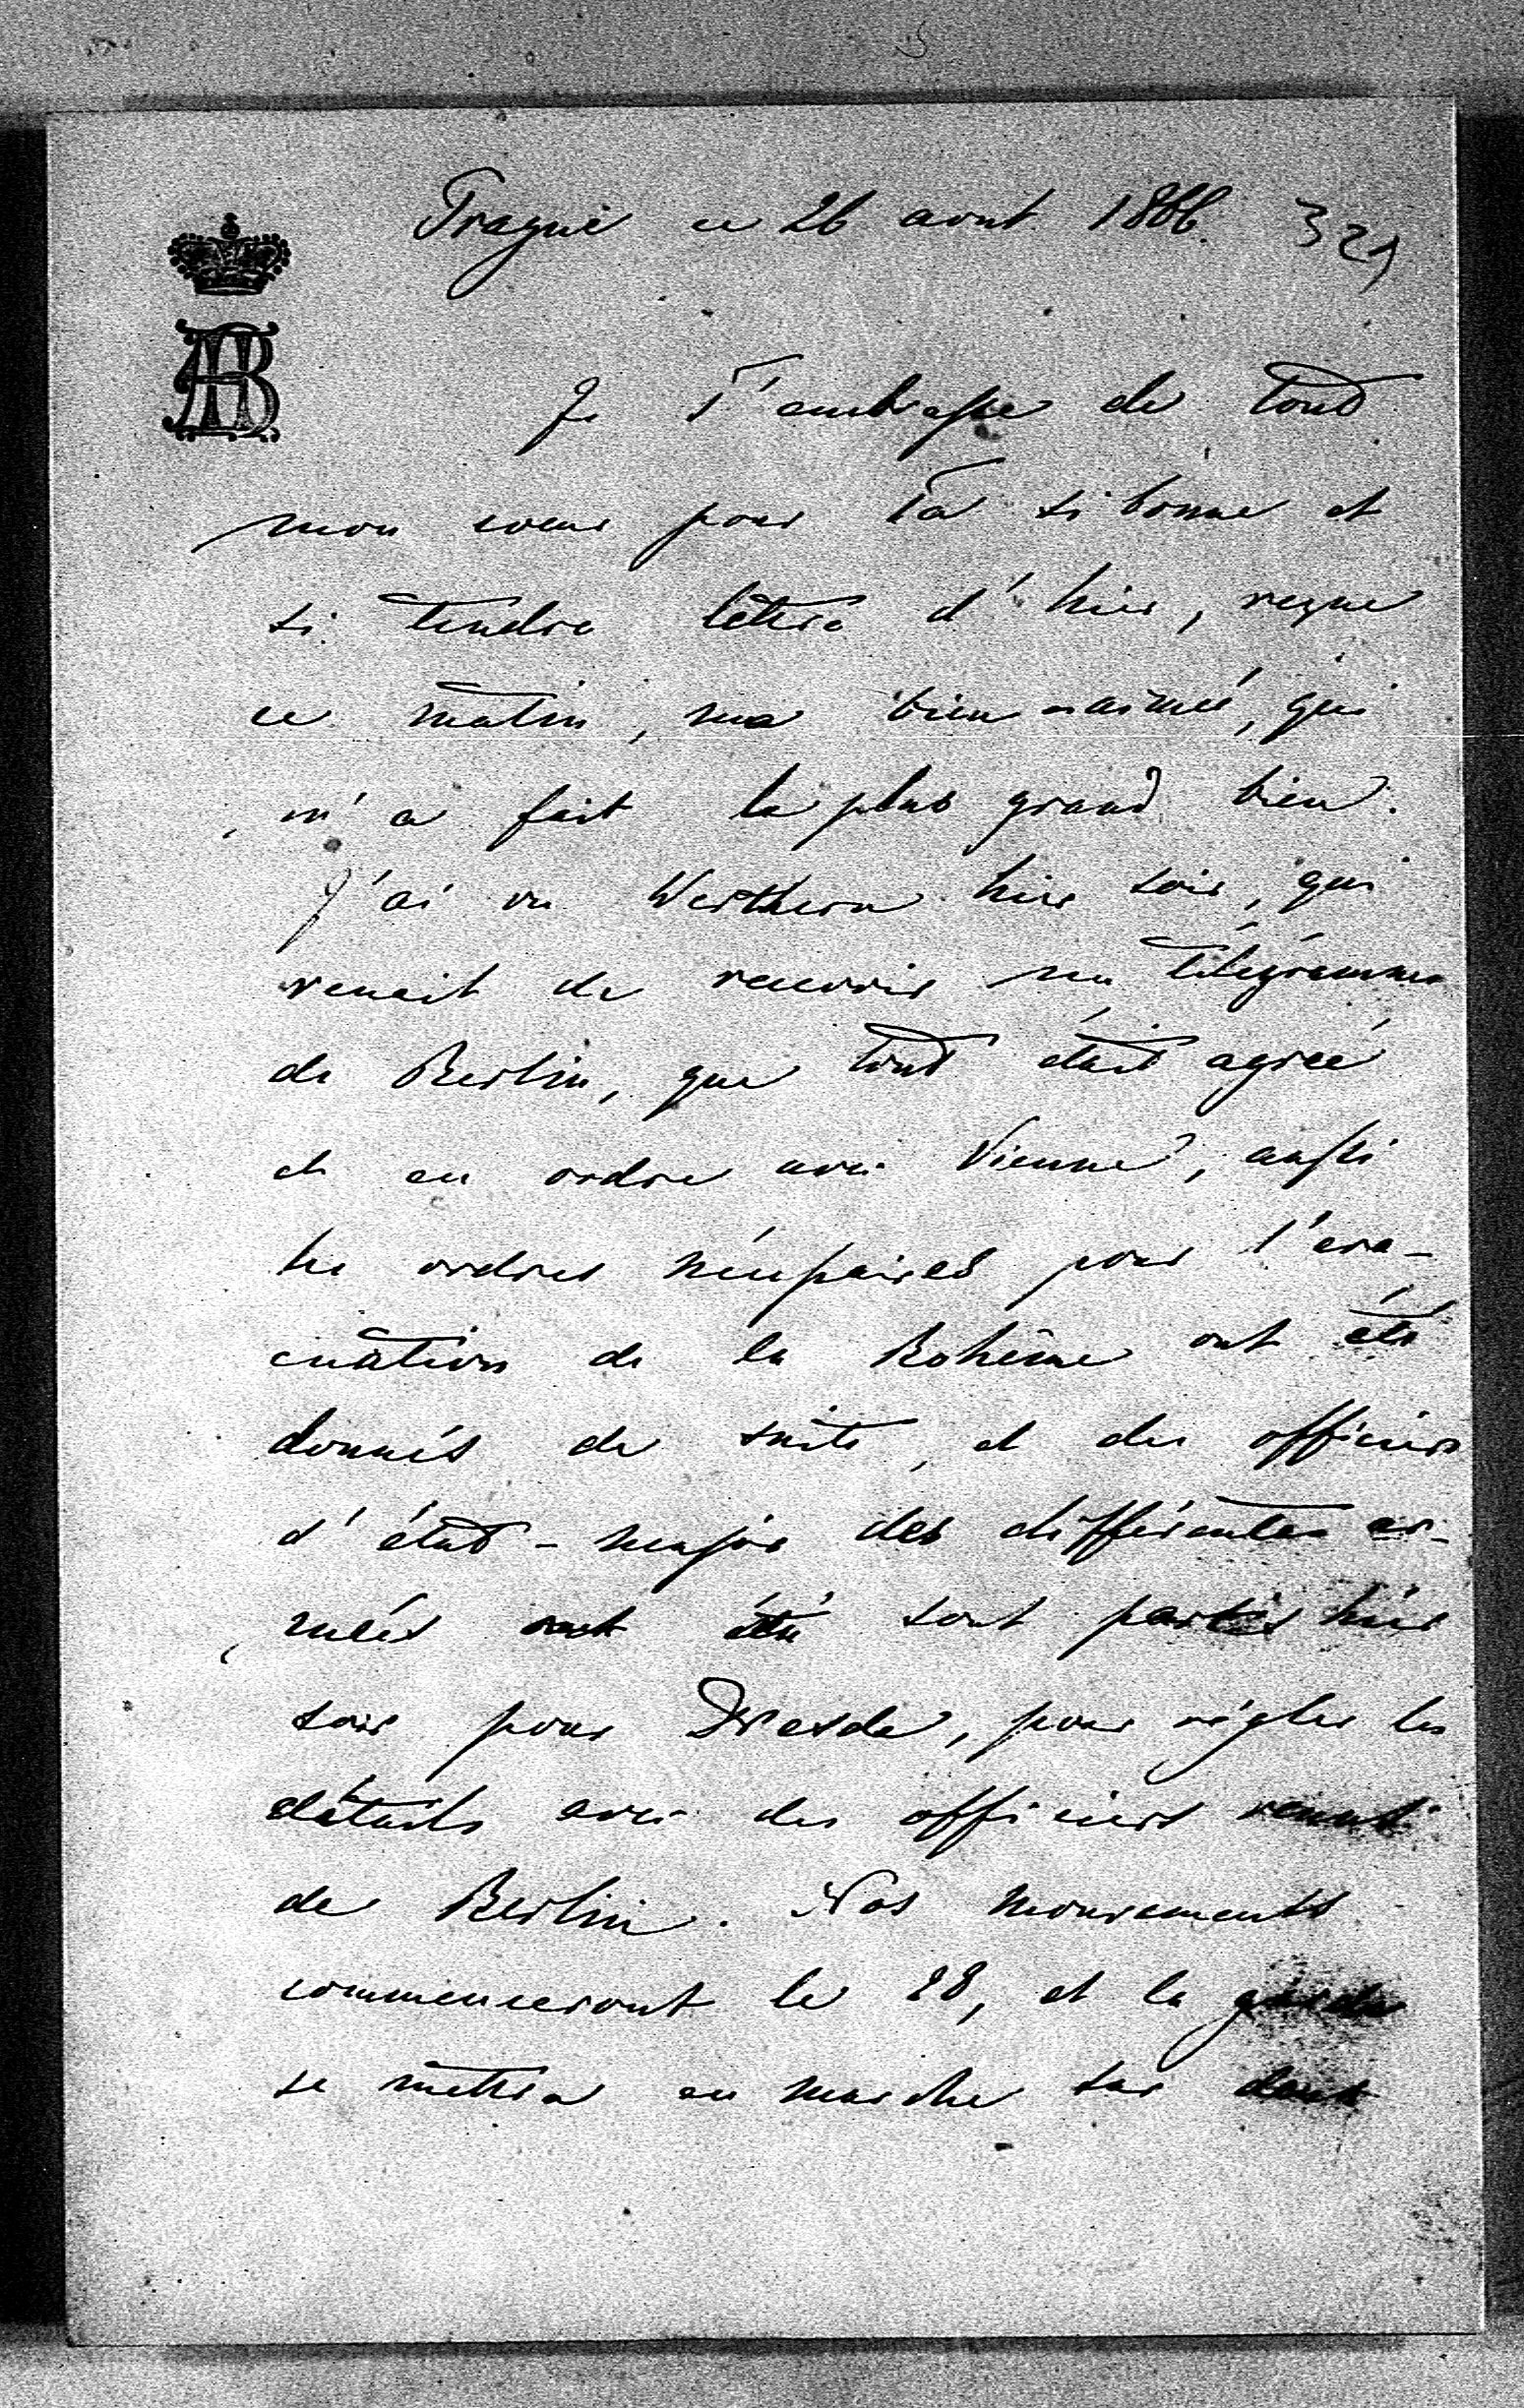 Prague ce 26 aout 1866. 321
AB
Je T'embrasse de tout
mon coeur pour Ta si bonne et
si tendre lettre d'hier, reçue
ce matin, ma bien-aimée, qui
m'a fait le plus grand bien.
J'ai vu Werthern hier soir, qui
venait de recevoir un télégramme
de Berlin, que tout était agréé
et en ordre avec Vienne, aussi
les ordres nécessaires pour l'éva-
cuation de la Bohème ont été
donnés de suite, et des officiers
d'état-major des différentes ar-
mées ont été sont partis hier
soir pour Dresde, pour régler les
détails avec des officiers venant
de Berlin. Nos mouvements
commenceront le 28, et la garde
se mettra en marche sur deux